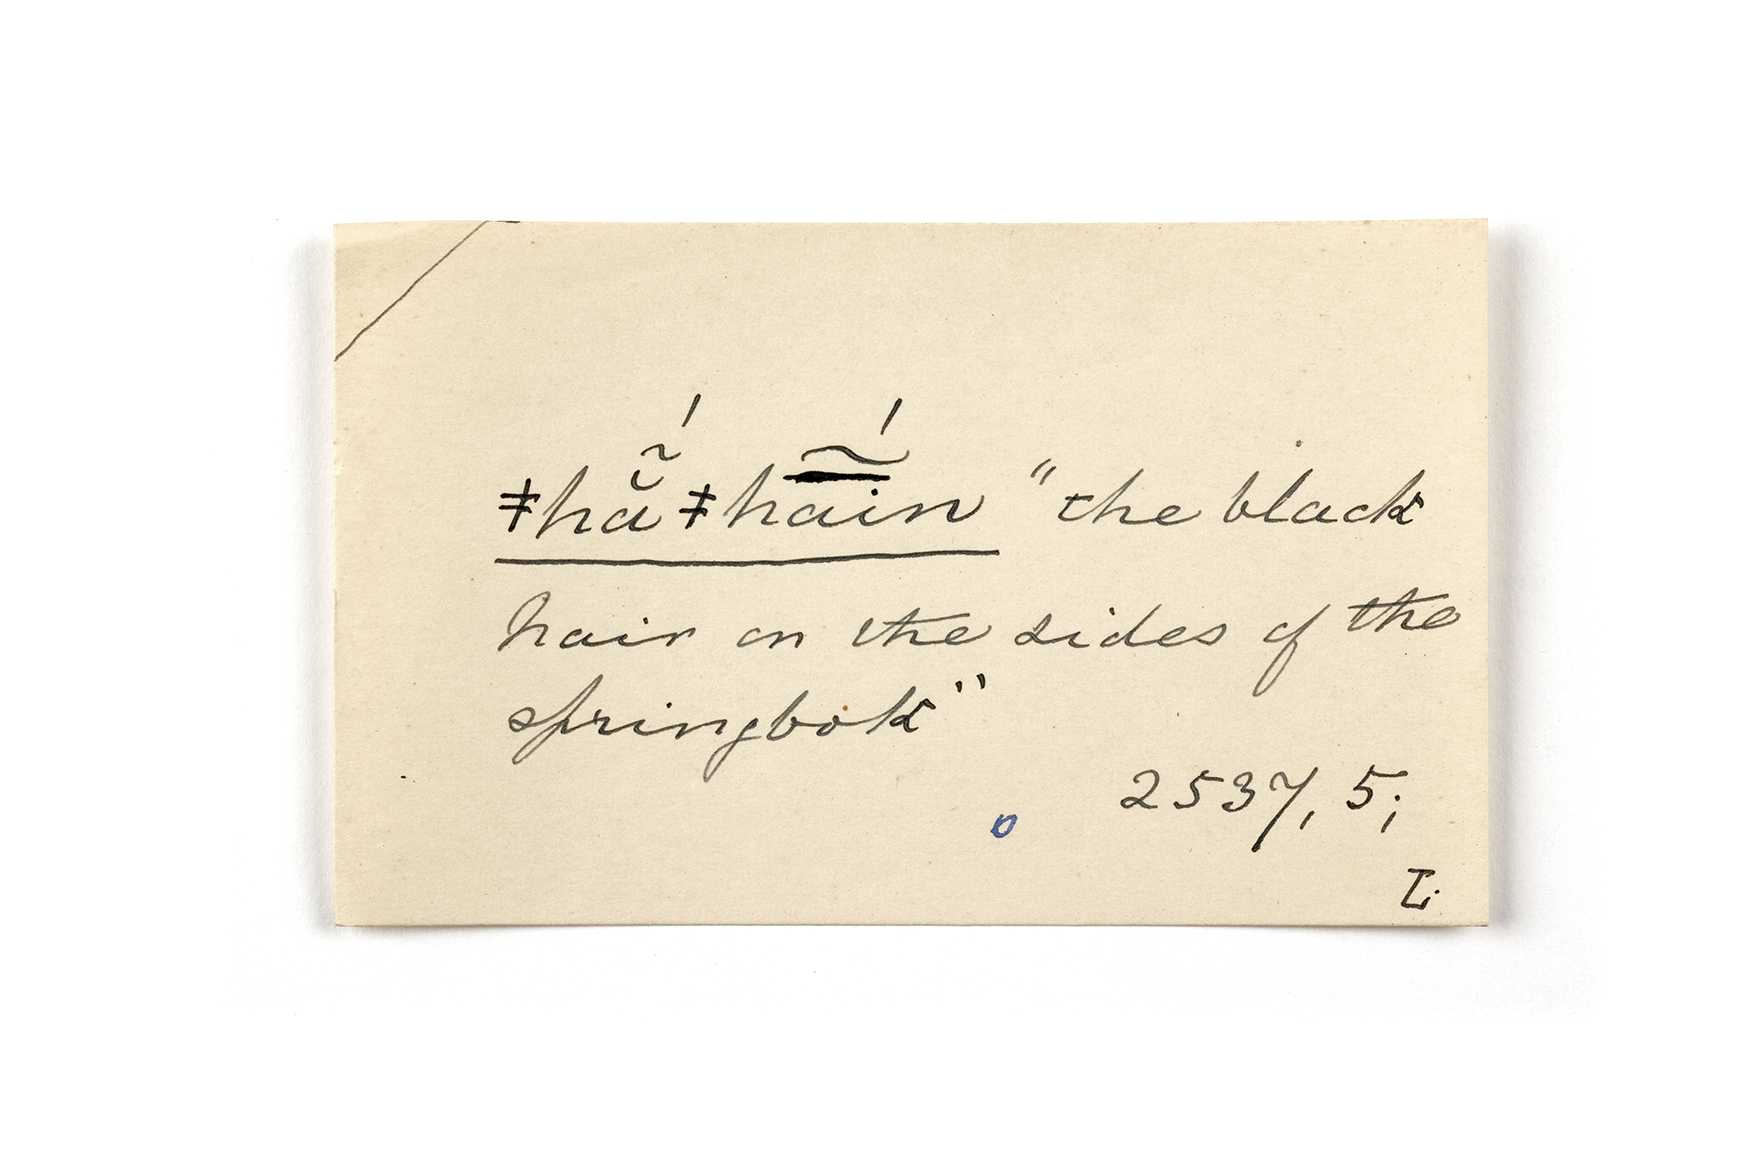 ǂhắ̃ ǂha͠ín "the black
hair on the sides of the
springbok"
2537, 5;
o
L.